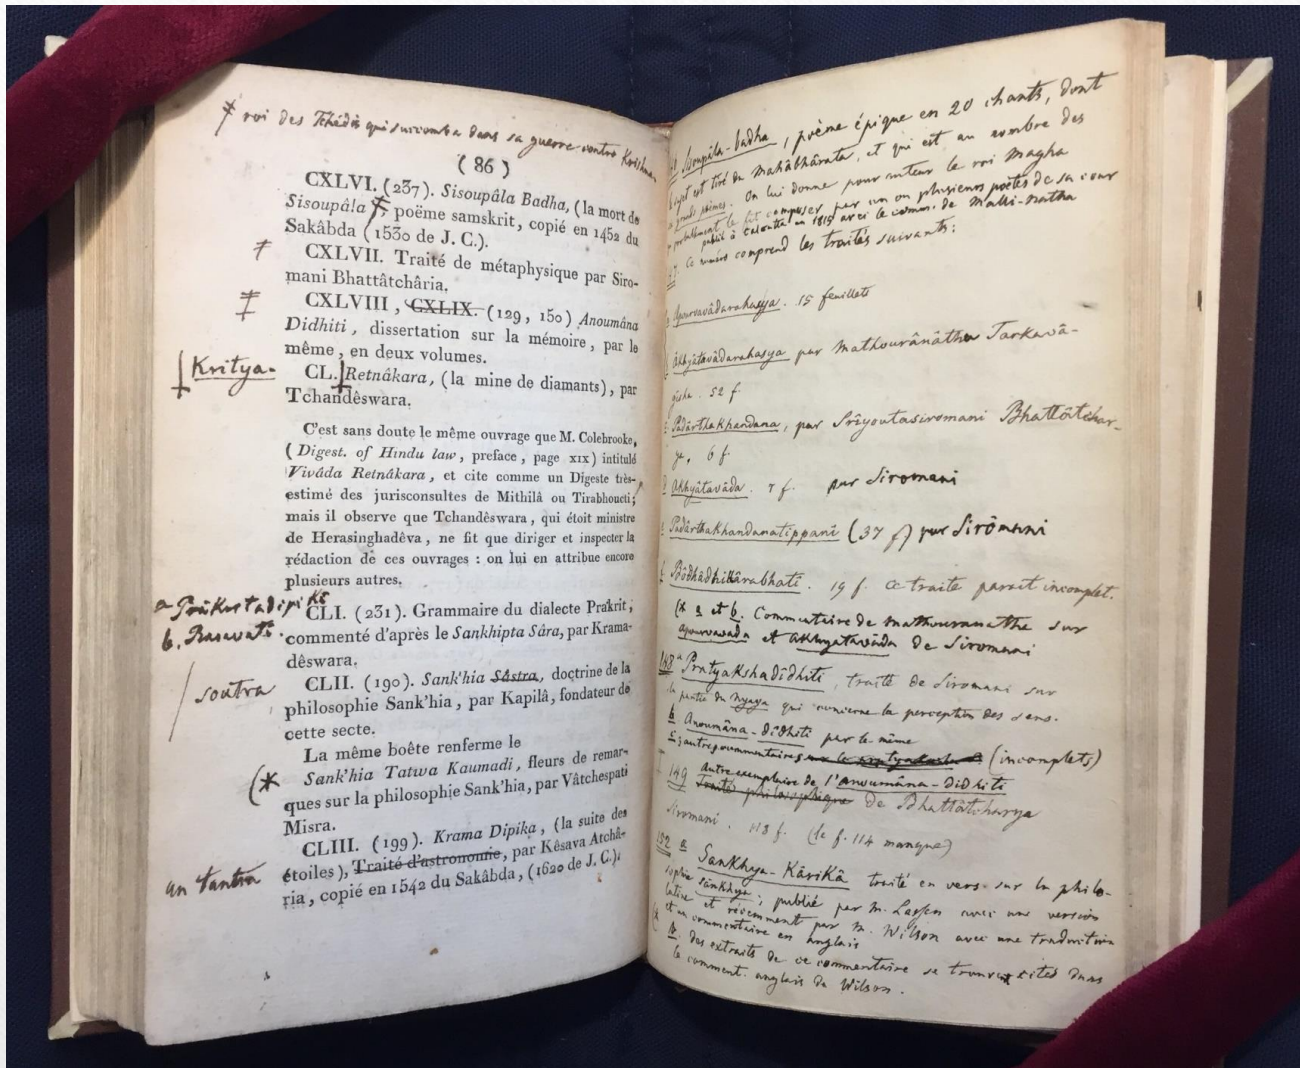 ‡ roi des Tchédis qui succomba dans sa guerre contre Krishna.
(86)
CXLVI. (237). Sisoupâla Badha, (la mort de
Sisoupâla ‡, poëme samskrit, copié en 1452 du
Sakâbda (1530 de J. C.).
‡ CXLVII. Traité de métaphysique par Siro-
mani Bhattâtchâria.
‡ CXLVIII, CXLIX. (129, 150) Anoumâna
Didhiti, dissertation sur la mémoire, par le
même, en deux volumes.
Kritya- CL. Retnâkara, (la mine de diamants), par
Tchandêswara.
C'est sans doute le même ouvrage que M. Colebrooke,
(Digest. of Hindu law, preface, page XIX) intitulé
Vivâda Retnâkara, et cite comme un Digeste très-
estimé des jurisconsultes de Mithilâ ou Tirabhoucti;
mais il observe que Tchandêswara, qui étoit ministre
de Herasinghadêva, ne fit que diriger et inspecter la
rédaction de ces ouvrages : on lui en attribue encore
plusieurs autres.
a Prâkrtadipikâ
CLI. (231). Grammaire du dialecte Prâkrit,
b. Rasavatî.
commenté d'après le Sankhipta Sâra, par Krama-
dêswara.
soûtra CLII. (190). Sank'hia Sâstra, doctrine de la
philosophie Sank'hia, par Kapilâ, fondateur de
cette secte.
La même boête renferme le
(* Sank'hia Tatwa Kaumadi, fleurs de remar-
ques sur la philosophie Sank'hia, par Vâtchespati
Misra.
CLIII. (199). Krama Dipika, (la suite des
un tantra étoiles), Traité d'astronomie, par Kêsava Atchâ-
ria, copié en 1542 du Sakâbda, (1620 de J. C.).
Sisoupâla-badha, poème épique en 20 chants, dont
sujet est tiré du Mahâbhârata, et qui est au nombre des
grands poèmes. On lui donne pour auteur le roi Magha
probablement le fit composer par un ou plusieurs poètes de sa cour
publié à Calcutta en 1815 avec le comm. de Malli-natha
Ce numéro comprend les traités suivants:
Apourvavâdarahasya. 15 feuillets
Akhyâtavâdarahasya par Mathourânâtha Tarkavâ-
gisha. 52 f.
Padârthakhandana, par Srîyoutasiromani Bhattâtchar-
ya, 6 f.
Akhyâtavâda. 7 f. par Siromani
Padârthakhandanatippanî (37 f) par Sirômani
Bôdhâdhikârabhatî. 19 f. ce traité parait incomplet.
(* a et b. Commentaire de Mathouranatha sur
apourvavada et Akhyatavâda de Siromani
148 a Pratyakshadîdhiti, traité de Siromani sur
la partie du Nyaya qui concerne la perception des sens.
b Anoumâna-dîdhiti par le même
autres commentaires (incomplets)
149 Autre exemplaire de l'anoumâna-didhiti
Traité philosophique de Bhattâtcharya
Siromani. 113 f. (le f. 114 manque)
152 a Sankhya-Kârikâ traité en vers sur la philo-
sophie sânkhya; publié par M. Lassen avec une version
latine et récemment par M. Wilson avec une traduction
et un commentaire en anglais
(* b. des extraits de ce commentaire se trouvent cités dans
le comment. anglais de Wilson.